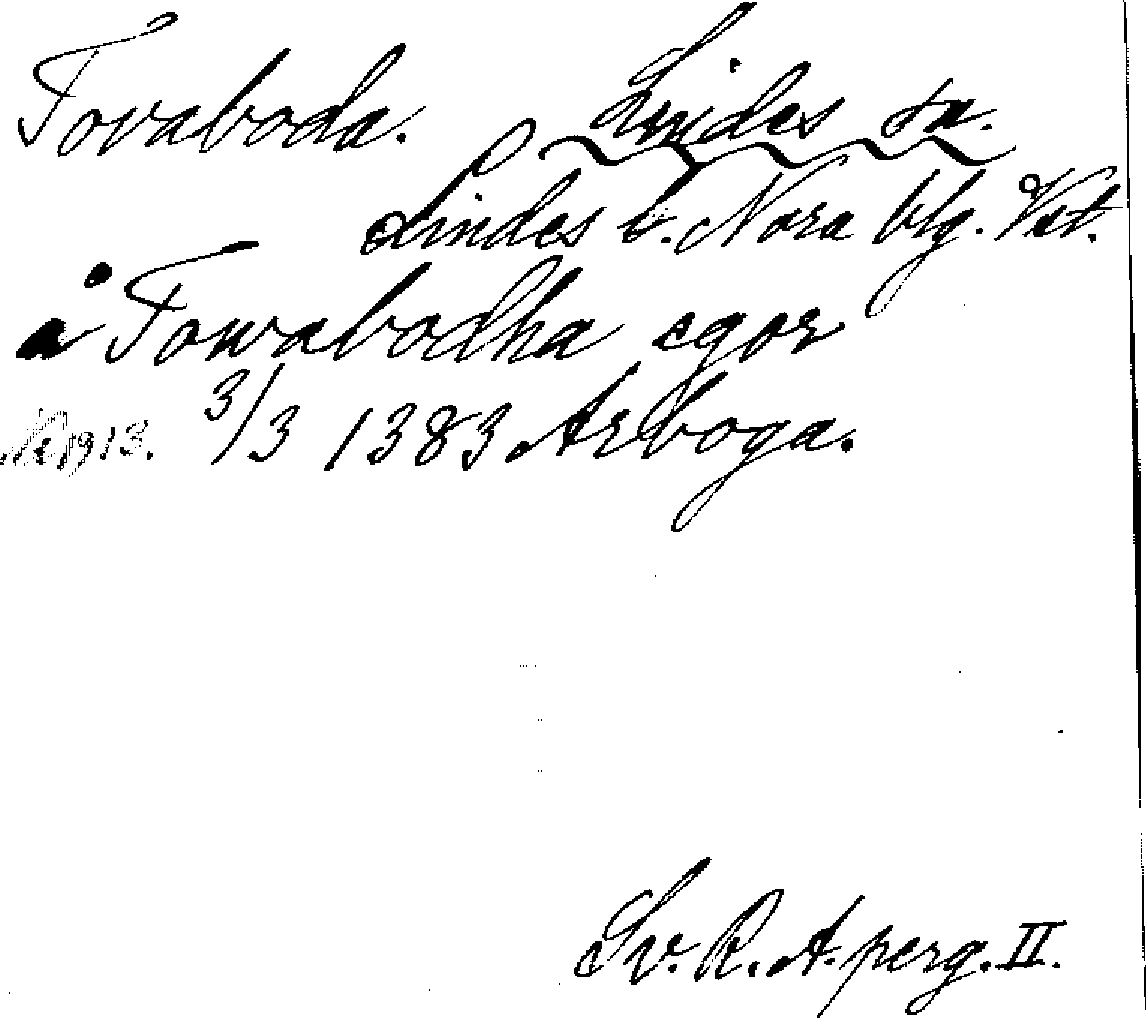 Tovaboda. Lindes sn.
Lindes o. Nora blg. Vst.
å Towabodha egor
Nr 1913. 3/3 1383 Arboga.
Sv. R. A. perg. II.